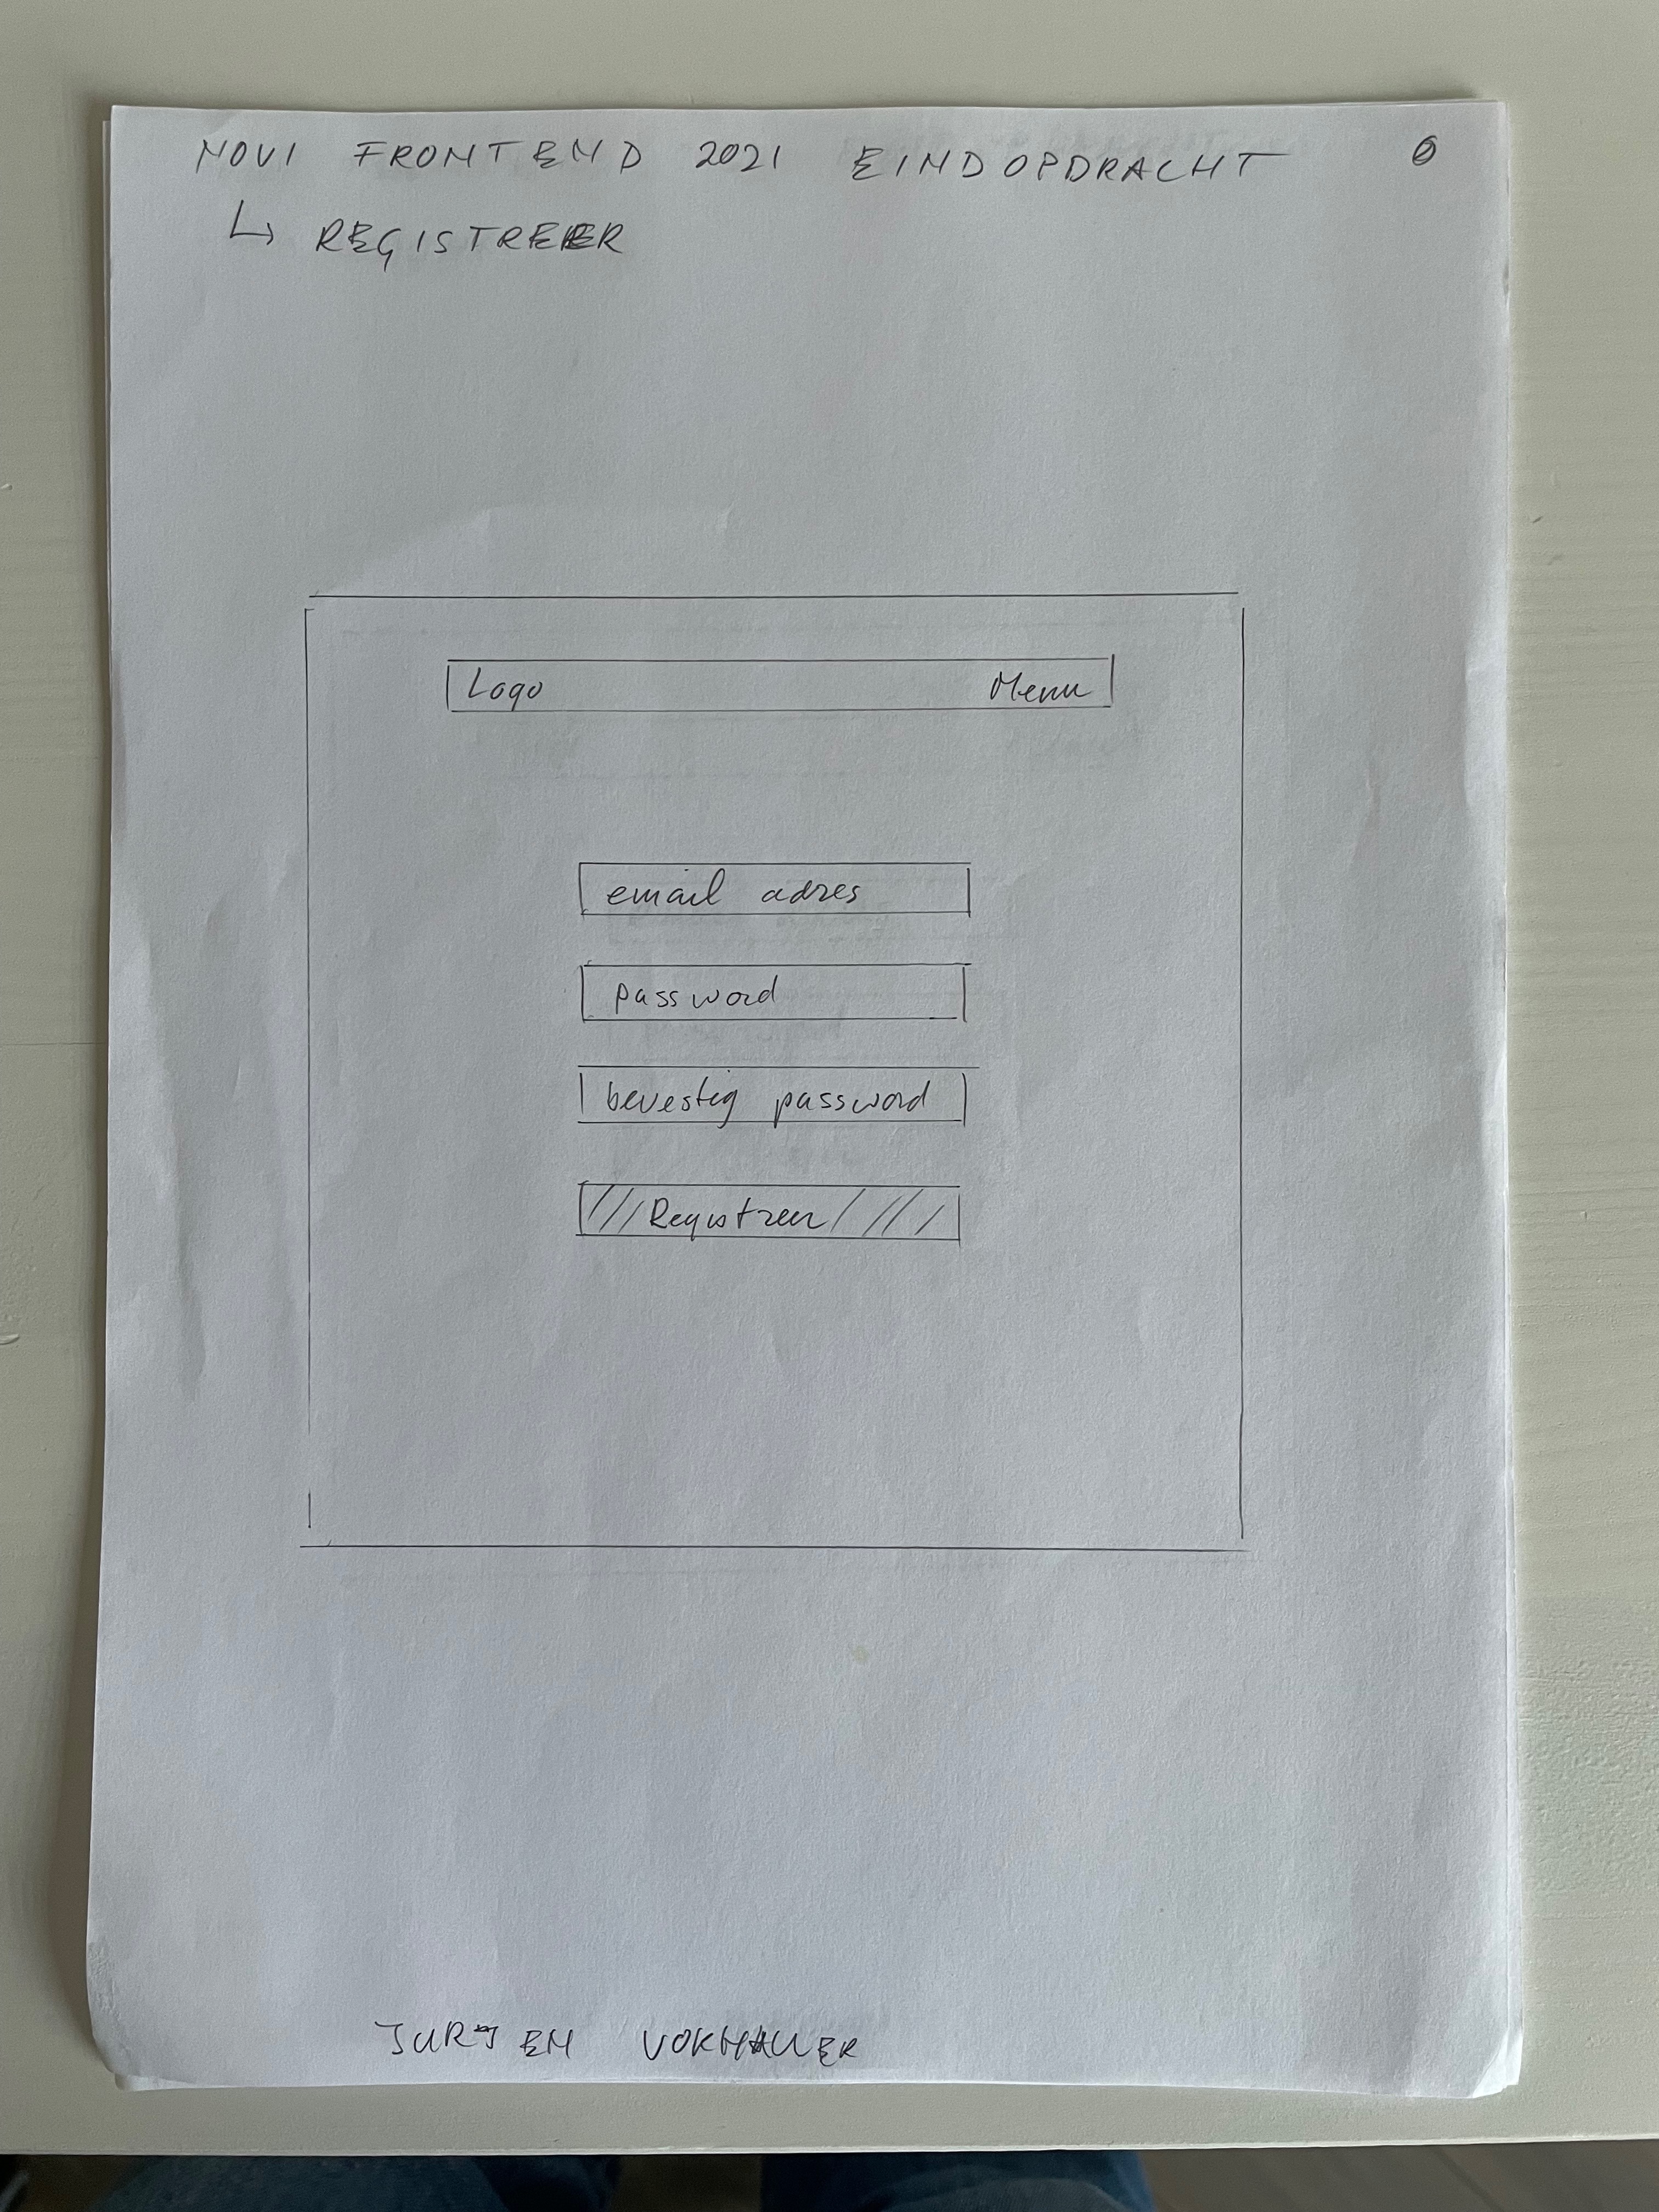 NOVI FRONTEND 2021 EINDOPDRACHT 0
↳ REGISTREER
Logo Menu
email adres
password
bevestig password
Registreer
JURJEN